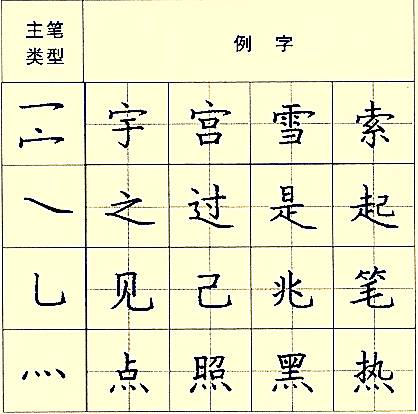 主笔类型 例字
冖宀 宇 宫 雪 索
㇏ 之 过 是 起
乚 见 己 兆 笔
灬 点 照 黑 热